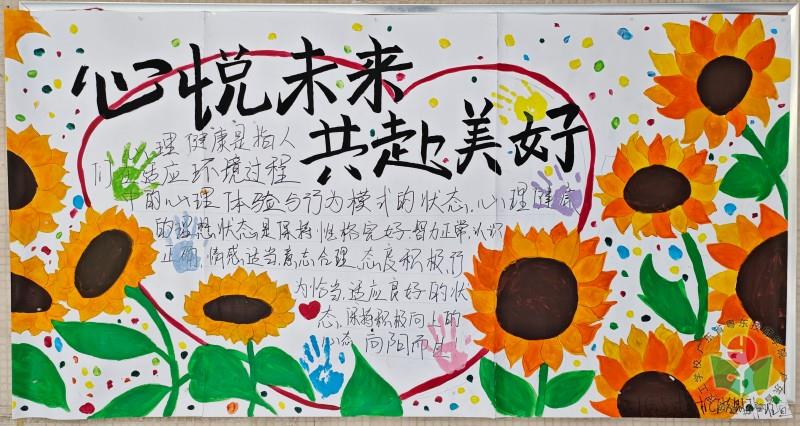 心悦未来
共赴美好
理健康是指人
们在适应环境过程
中的心理体验与行为模式的状态,心理健康
的理想状态是保持性格完好,智力正常,认识
正确,情感适当,意志合理,态度积极,行
为恰当,适应良好的状
态,保持积极向上的
心态,向阳而生